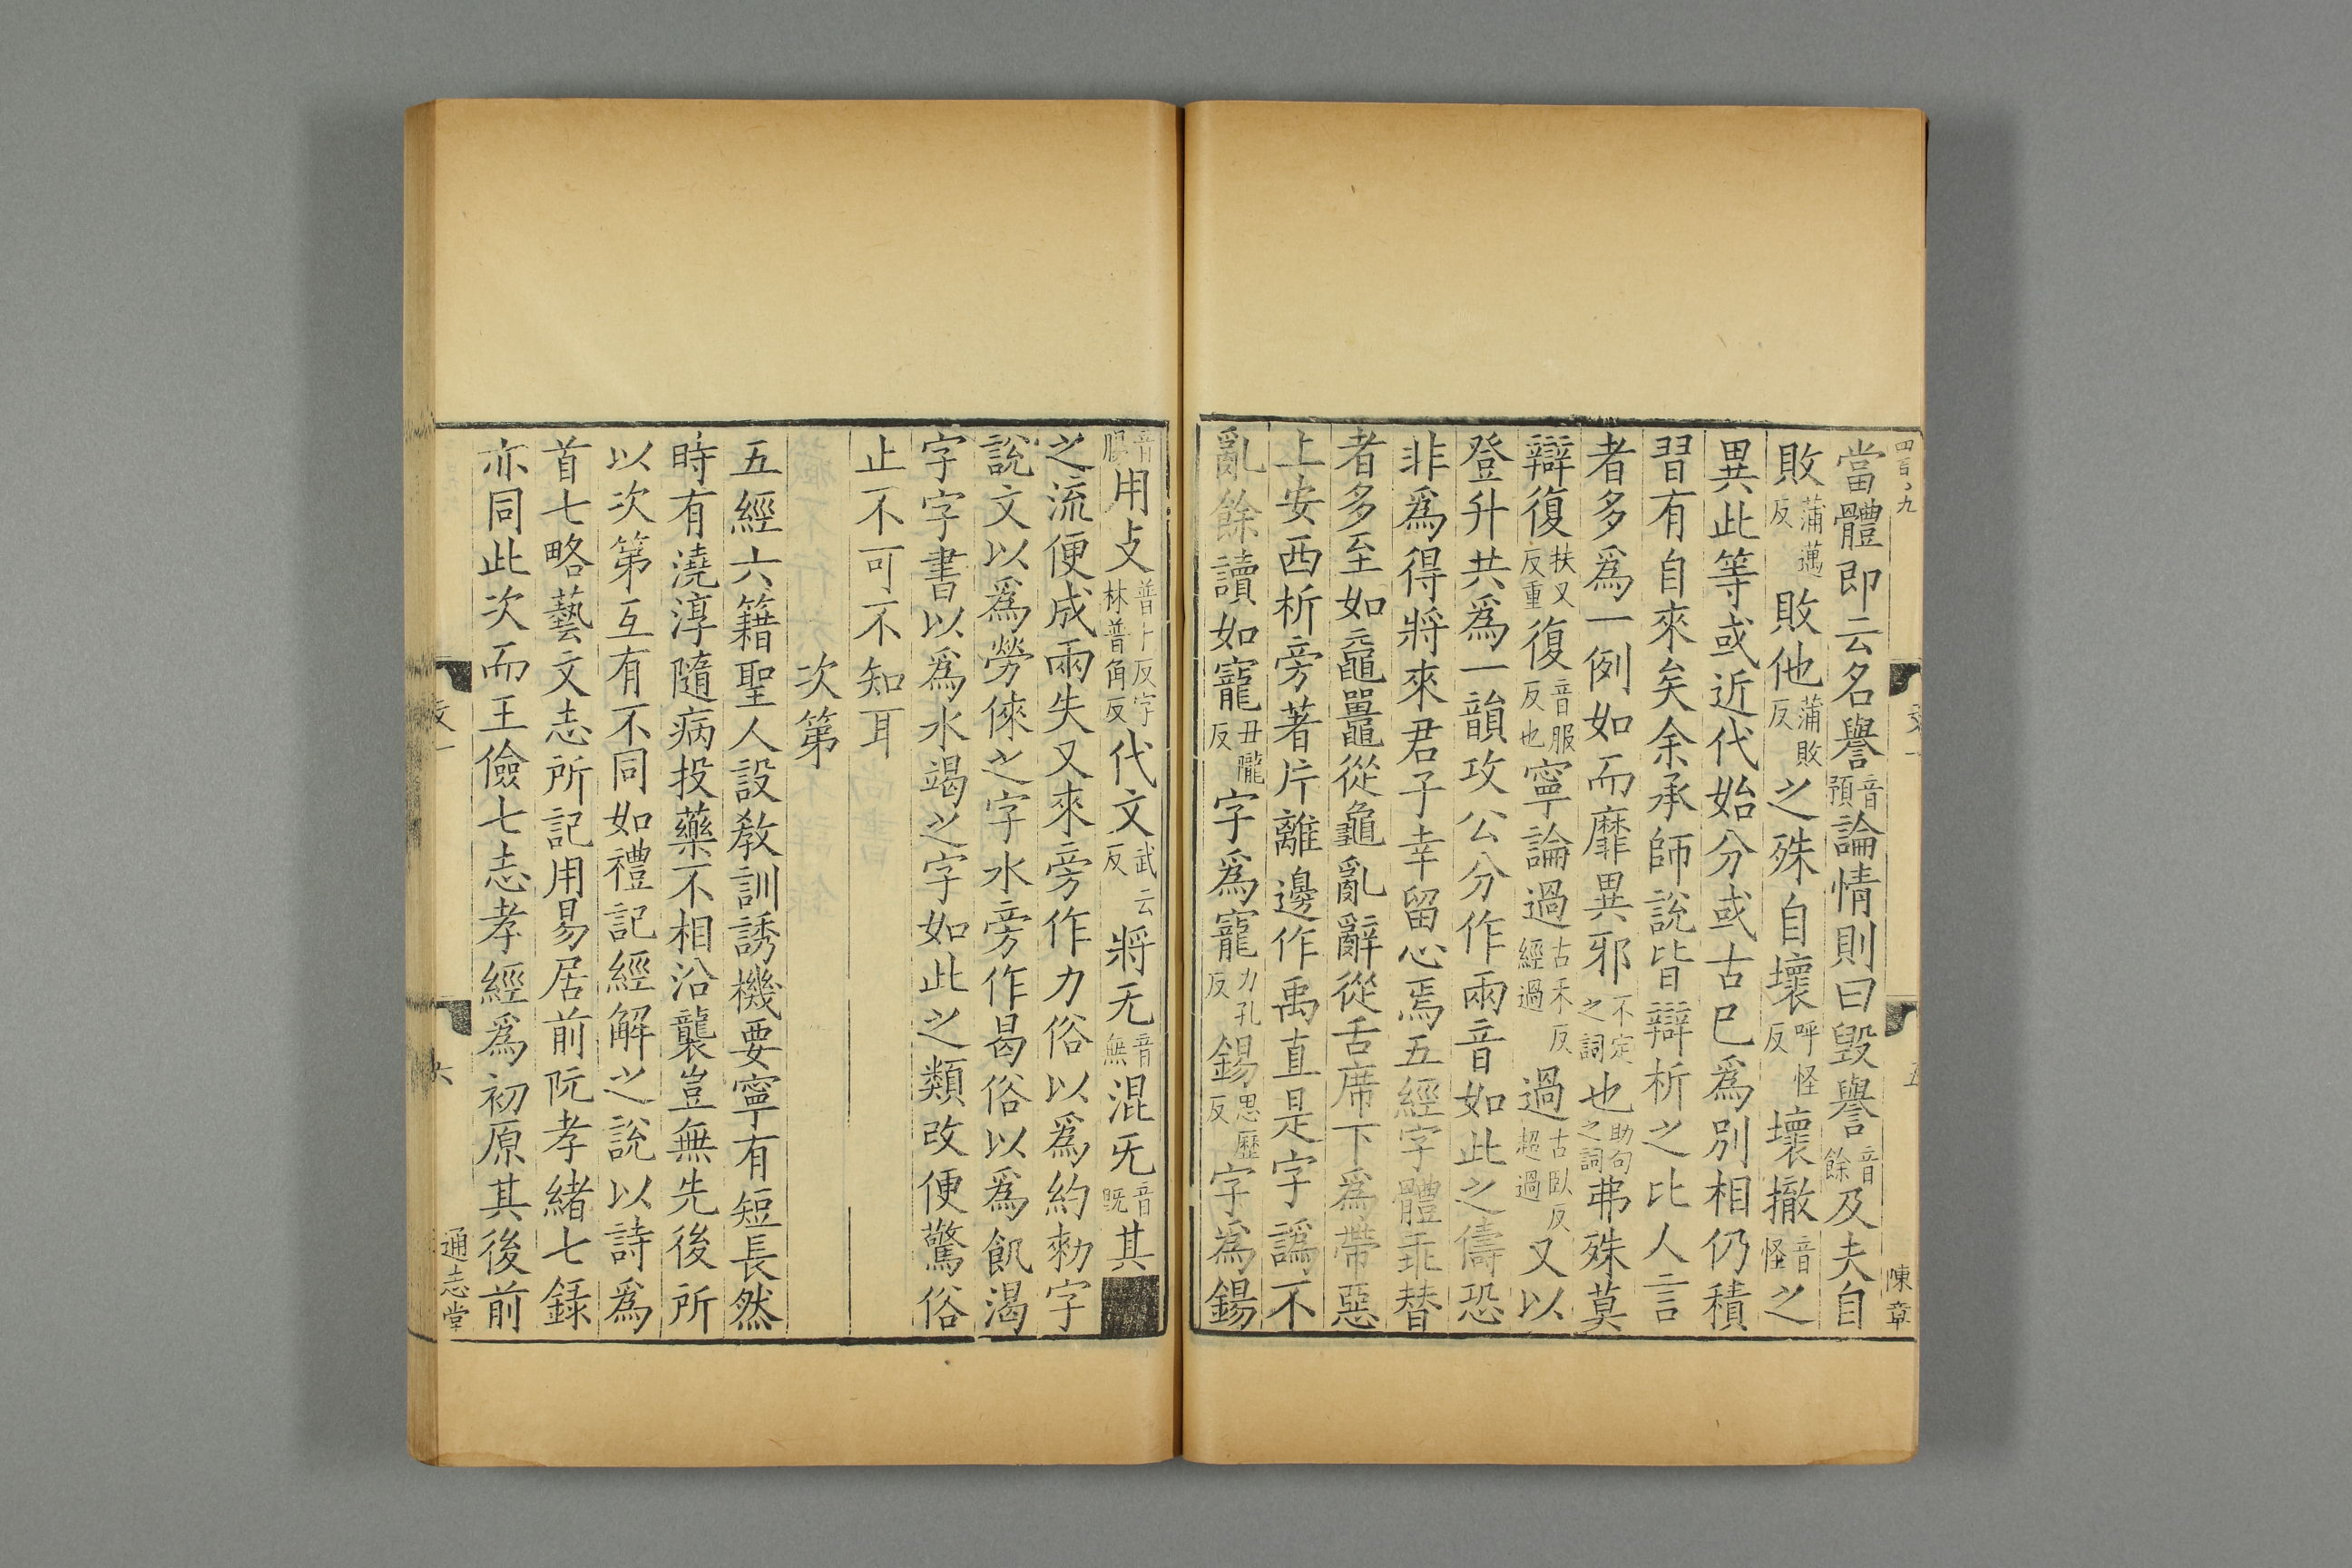 四百〻九
陳章
當體即云名譽音預論情則曰毀譽音餘及夫自
敗蒲邁反敗他蒲敗反之殊自壞呼怪反壞撤音怪之
異此等或近代始分或古巳爲別相仍積
習有自來矣余承師說皆辯析之比人言
者多爲一例如而靡異邪不定之詞也助句之詞弗殊莫
辯復扶又反重復音服反也寧論過古禾反經過過古臥反超過又以
登升共爲一韻攻公分作兩音如此之儔恐
非爲得將來君子幸留心焉五經字體乖替
者多至如黿鼉從龜亂辭從舌席下爲帶惡
上安西析旁著片離邊作禹直是字譌不
亂餘讀如寵丑隴反字爲寵力孔反錫思歷反字爲錫
音陽用攴普卜反字林普角反代文武云反將无音無混旡音旣其
之流便成兩失又來旁作力俗以爲約勑字
說文以爲勞倈之字水旁作曷俗以爲飢渴
字字書以爲水竭之字如此之類改便驚俗
止不可不知耳
次第
五經六籍聖人設教訓誘機要寧有短長然
時有澆淳隨病投藥不相沿襲豈無先後所
以次第互有不同如禮記經解之說以詩爲
首七略藝文志所記用易居前阮孝緒七錄
亦同此次而王儉七志孝經爲初原其後前
六
通志堂